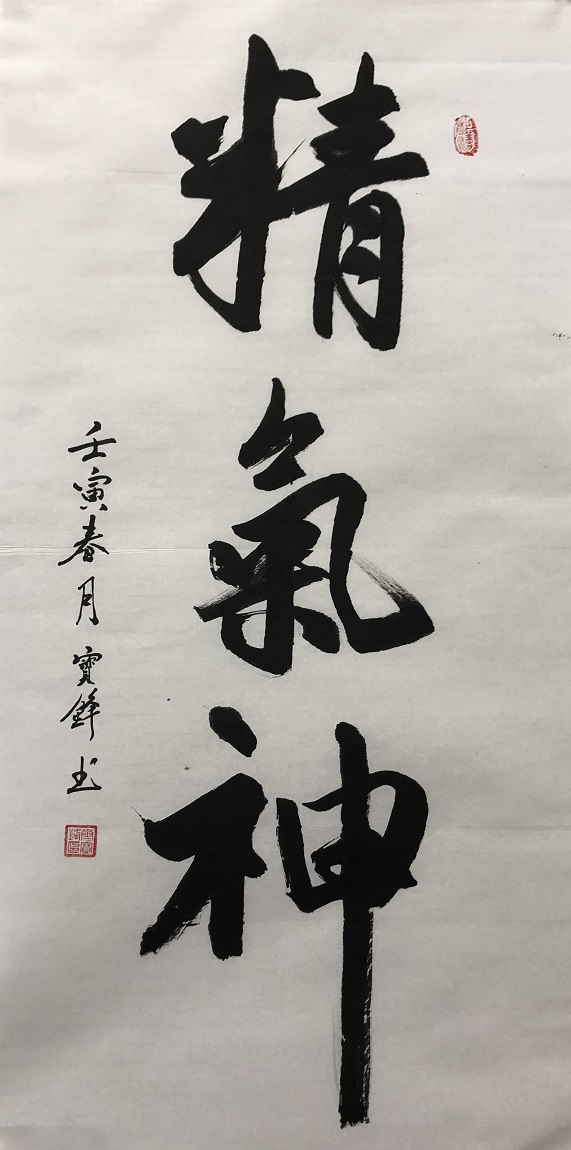 精氣神
壬寅春月寶鋒书